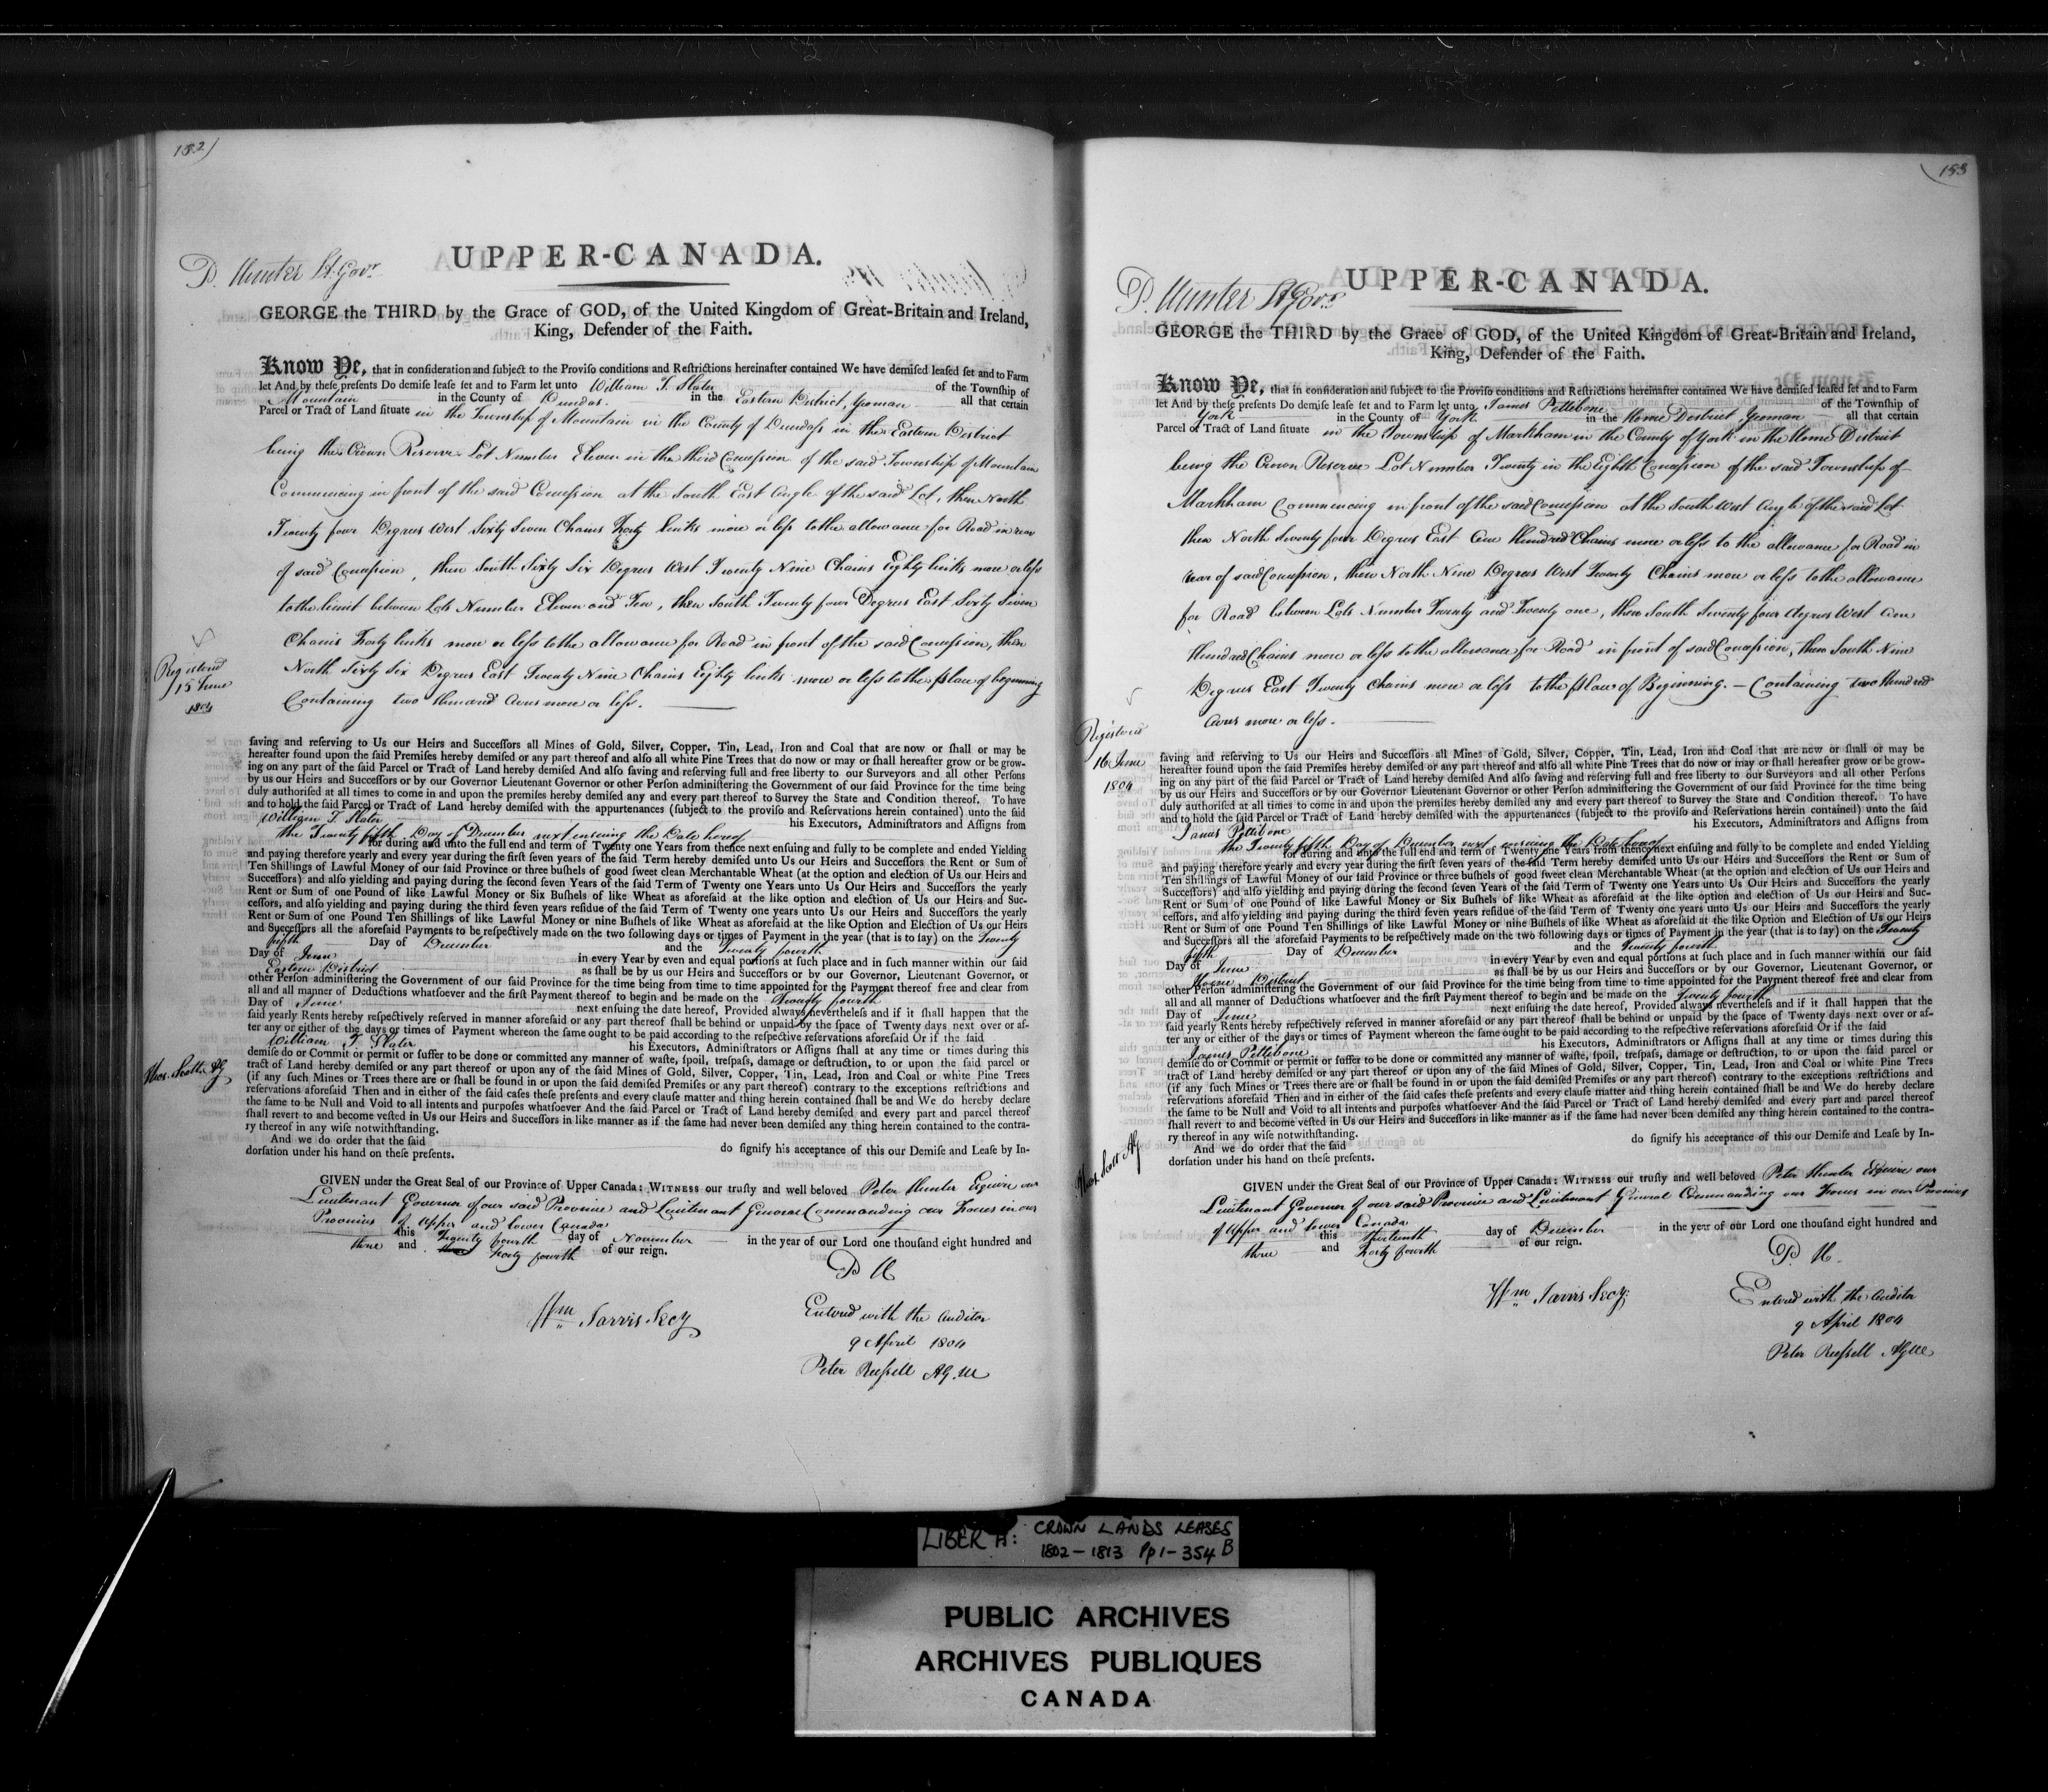 152)
UPPER-CANADA.
P. Hunter Lt. Govr.
GEORGE the THIRD by the Grace of GOD, of the United Kingdom of Great-Britain and Ireland,
King, Defender of the Faith.
Know Ye, that in consideration and subject to the Proviso conditions and Restrictions hereinafter contained We have demised leased set and to Farm
let And by these presents Do demise lease set and to Farm let unto William T. Slater of the Township of
Mountain in the County of Dundas. in the Eastern District, Yeoman all that certain
Parcel or Tract of Land situate in the Township of Mountain in the County of Dundass in the Eastern District
being the Crown Reserve Lot Number Eleven in the third Concession of the said Township of Mountain
Commencing in front of the said Concession at the South East angle of the said Lot, then North
Twenty four Degrees West Sixty Seven Chains Forty links more or less to the allowance for Road in rear
of said Concession, then South Sixty Six Degrees West Twenty Nine Chains Eighty links more or less
to the limit between Lots Number Eleven and Ten, then South Twenty four Degrees East Sixty Seven
Chains Forty links more or less to the allowance for Road in front of the said Concession, then
North Sixty Six Degrees East Twenty Nine Chains Eighty links more or less to the place of beginning
Containing two Hundred Acres more or less.
Registered
15 June
1804
saving and reserving to Us our Heirs and Successors all Mines of Gold, Silver, Copper, Tin, Lead, Iron and Coal that are now or shall or may be
hereafter found upon the said Premises hereby demised or any part thereof and also all white Pine Trees that do now or may or shall hereafter grow or be grow-
ing on any part of the said Parcel or Tract of Land hereby demised And also saving and reserving full and free liberty to our Surveyors and all other Persons
by us our Heirs and Successors or by our Governor Lieutenant Governor or other Person administering the Government of our said Province for the time being
duly authorised at all times to come in and upon the premises hereby demised any and every part thereof to Survey the State and Condition thereof. To have
and to hold the said Parcel or Tract of Land hereby demised with the appurtenances (subject to the proviso and Reservations herein contained) unto the said
William T. Slater his Executors, Administrators and Assigns from
the Twenty fifth Day of December next ensuing the Date hereof
for during and unto the full end and term of Twenty one Years from thence next ensuing and fully to be complete and ended Yielding
and paying therefore yearly and every year during the first seven years of the said Term hereby demised unto Us our Heirs and Successors the Rent or Sum of
Ten Shillings of Lawful Money of our said Province or three bushels of good sweet clean Merchantable Wheat (at the option and election of Us our Heirs and
Successors) and also yielding and paying during the second seven Years of the said Term of Twenty one Years unto Us Our Heirs and Successors the yearly
Rent or Sum of one Pound of like Lawful Money or Six Bushels of like Wheat as aforesaid at the like option and election of Us our Heirs and Suc-
cessors, and also yielding and paying during the third seven years residue of the said Term of Twenty one years unto Us our Heirs and Successors the yearly
Rent or Sum of one Pound Ten Shillings of like Lawful Money or nine Bushels of like Wheat as aforesaid at the like Option and Election of Us our Heirs
and Successors all the aforesaid Payments to be respectively made on the two following days or times of Payment in the year (that is to say) on the Twenty
fifth Day of December and the Twenty fourth
Day of June in every Year by even and equal portions at such place and in such manner within our said
Eastern District as shall be by us our Heirs and Successors or by our Governor, Lieutenant Governor, or
other Person administering the Government of our said Province for the time being from time to time appointed for the Payment thereof free and clear from
all and all manner of Deductions whatsoever and the first Payment thereof to begin and be made on the Twenty fourth
Day of June next ensuing the date hereof, Provided always nevertheless and if it shall happen that the
said yearly Rents hereby respectively reserved in manner aforesaid or any part thereof shall be behind or unpaid by the space of Twenty days next over or af-
ter any or either of the days or times of Payment whereon the same ought to be paid according to the respective reservations aforesaid Or if the said
William T. Slater his Executors, Administrators or Assigns shall at any time or times during this
demise do or Commit or permit or suffer to be done or committed any manner of waste, spoil, trespass, damage or destruction, to or upon the said parcel or
tract of Land hereby demised or any part thereof or upon any of the said Mines of Gold, Silver, Copper, Tin, Lead, Iron and Coal or white Pine Trees
(if any such Mines or Trees there are or shall be found in or upon the said demised Premises or any part thereof) contrary to the exceptions restrictions and
reservations aforesaid Then and in either of the said cases these presents and every clause matter and thing herein contained shall be and We do hereby declare
the same to be Null and Void to all intents and purposes whatsoever And the said Parcel or Tract of Land hereby demised and every part and parcel thereof
shall revert to and become vested in Us our Heirs and Successors in like manner as if the same had never been demised any thing herein contained to the contra-
ry thereof in any wise notwithstanding.
Thos. Scott AG
And we do order that the said do signify his acceptance of this our Demise and Lease by In-
dorsation under his hand on these presents.
GIVEN under the Great Seal of our Province of Upper Canada: WITNESS our trusty and well beloved Peter Hunter Esquire our
Lieutenant Governor of our said Province and Lieutenant General Commanding our Forces in our
Provinces of Upper and lower Canada
this Twenty fourth day of November in the year of our Lord one thousand eight hundred and
three and Forty fourth of our reign.
P H
Wm Jarvis Secy
Entered with the Auditor
9 April 1804
Peter Russell AG.
(153
UPPER-CANADA.
P. Hunter Lt Govr
GEORGE the THIRD by the Grace of GOD, of the United Kingdom of Great-Britain and Ireland,
King, Defender of the Faith.
Know Ye, that in consideration and subject to the Proviso conditions and Restrictions hereinafter contained We have demised leased set and to Farm
let And by these presents Do demise lease set and to Farm let unto James Pettibone of the Township of
York in the County of York in the Home District Yeoman all that certain
Parcel or Tract of Land situate in the Township of Markham in the County of York in the Home District
being the Crown Reserve Lot Number Twenty in the Eighth Concession of the said Township of
Markham Commencing in front of the said Concession at the South West angle of the said Lot
then North Seventy four Degrees East One Hundred Chains more or less to the allowance for Road in
rear of said Concession, then North Nine Degrees West Twenty Chains more or less to the allowance
for Road between Lots Number Twenty and Twenty one, then South Seventy four degrees West One
Hundred Chains more or less to the allowance for Road in front of said Concession, then South Nine
Degrees East Twenty Chains more or less to the place of Beginning. — Containing two Hundred
Acres more or less.
Registered
16 June
1804
saving and reserving to Us our Heirs and Successors all Mines of Gold, Silver, Copper, Tin, Lead, Iron and Coal that are now or shall or may be
hereafter found upon the said Premises hereby demised or any part thereof and also all white Pine Trees that do now or may or shall hereafter grow or be grow-
ing on any part of the said Parcel or Tract of Land hereby demised And also saving and reserving full and free liberty to our Surveyors and all other Persons
by us our Heirs and Successors or by our Governor Lieutenant Governor or other Person administering the Government of our said Province for the time being
duly authorised at all times to come in and upon the premises hereby demised any and every part thereof to Survey the State and Condition thereof. To have
and to hold the said Parcel or Tract of Land hereby demised with the appurtenances (subject to the proviso and Reservations herein contained) unto the said
James Pettibone his Executors, Administrators and Assigns from
the Twenty fifth Day of December next ensuing the Date hereof
for during and unto the full end and term of Twenty one Years from thence next ensuing and fully to be complete and ended Yielding
and paying therefore yearly and every year during the first seven years of the said Term hereby demised unto Us our Heirs and Successors the Rent or Sum of
Ten Shillings of Lawful Money of our said Province or three bushels of good sweet clean Merchantable Wheat (at the option and election of Us our Heirs and
Successors) and also yielding and paying during the second seven Years of the said Term of Twenty one Years unto Us Our Heirs and Successors the yearly
Rent or Sum of one Pound of like Lawful Money or Six Bushels of like Wheat as aforesaid at the like option and election of Us our Heirs and Suc-
cessors, and also yielding and paying during the third seven years residue of the said Term of Twenty one years unto Us our Heirs and Successors the yearly
Rent or Sum of one Pound Ten Shillings of like Lawful Money or nine Bushels of like Wheat as aforesaid at the like Option and Election of Us our Heirs
and Successors all the aforesaid Payments to be respectively made on the two following days or times of Payment in the year (that is to say) on the Twenty
fifth Day of December and the Twenty fourth
Day of June in every Year by even and equal portions at such place and in such manner within our said
Home District as shall be by us our Heirs and Successors or by our Governor, Lieutenant Governor, or
other Person administering the Government of our said Province for the time being from time to time appointed for the Payment thereof free and clear from
all and all manner of Deductions whatsoever and the first Payment thereof to begin and be made on the Twenty fourth
Day of June next ensuing the date hereof, Provided always nevertheless and if it shall happen that the
said yearly Rents hereby respectively reserved in manner aforesaid or any part thereof shall be behind or unpaid by the space of Twenty days next over or af-
ter any or either of the days or times of Payment whereon the same ought to be paid according to the respective reservations aforesaid Or if the said
James Pettibone his Executors, Administrators or Assigns shall at any time or times during this
demise do or Commit or permit or suffer to be done or committed any manner of waste, spoil, trespass, damage or destruction, to or upon the said parcel or
tract of Land hereby demised or any part thereof or upon any of the said Mines of Gold, Silver, Copper, Tin, Lead, Iron and Coal or white Pine Trees
(if any such Mines or Trees there are or shall be found in or upon the said demised Premises or any part thereof) contrary to the exceptions restrictions and
reservations aforesaid Then and in either of the said cases these presents and every clause matter and thing herein contained shall be and We do hereby declare
the same to be Null and Void to all intents and purposes whatsoever And the said Parcel or Tract of Land hereby demised and every part and parcel thereof
shall revert to and become vested in Us our Heirs and Successors in like manner as if the same had never been demised any thing herein contained to the contra-
ry thereof in any wise notwithstanding.
Thos. Scott AG.
And we do order that the said do signify his acceptance of this our Demise and Lease by In-
dorsation under his hand on these presents.
GIVEN under the Great Seal of our Province of Upper Canada: WITNESS our trusty and well beloved Peter Hunter Esquire our
Lieutenant Governor of our said Province and Lieutenant General Commanding our Forces in our Provinces
of Upper and lower Canada.
this thirteenth day of December in the year of our Lord one thousand eight hundred and
three and Forty fourth of our reign.
P. H.
Wm Jarvis Secy.
Entered with the Auditor
9 April 1804
Peter Russell
LIBER A: CROWN LANDS LEASES
1802 - 1813 Pp 1 - 354 B
PUBLIC ARCHIVES
ARCHIVES PUBLIQUES
CANADA